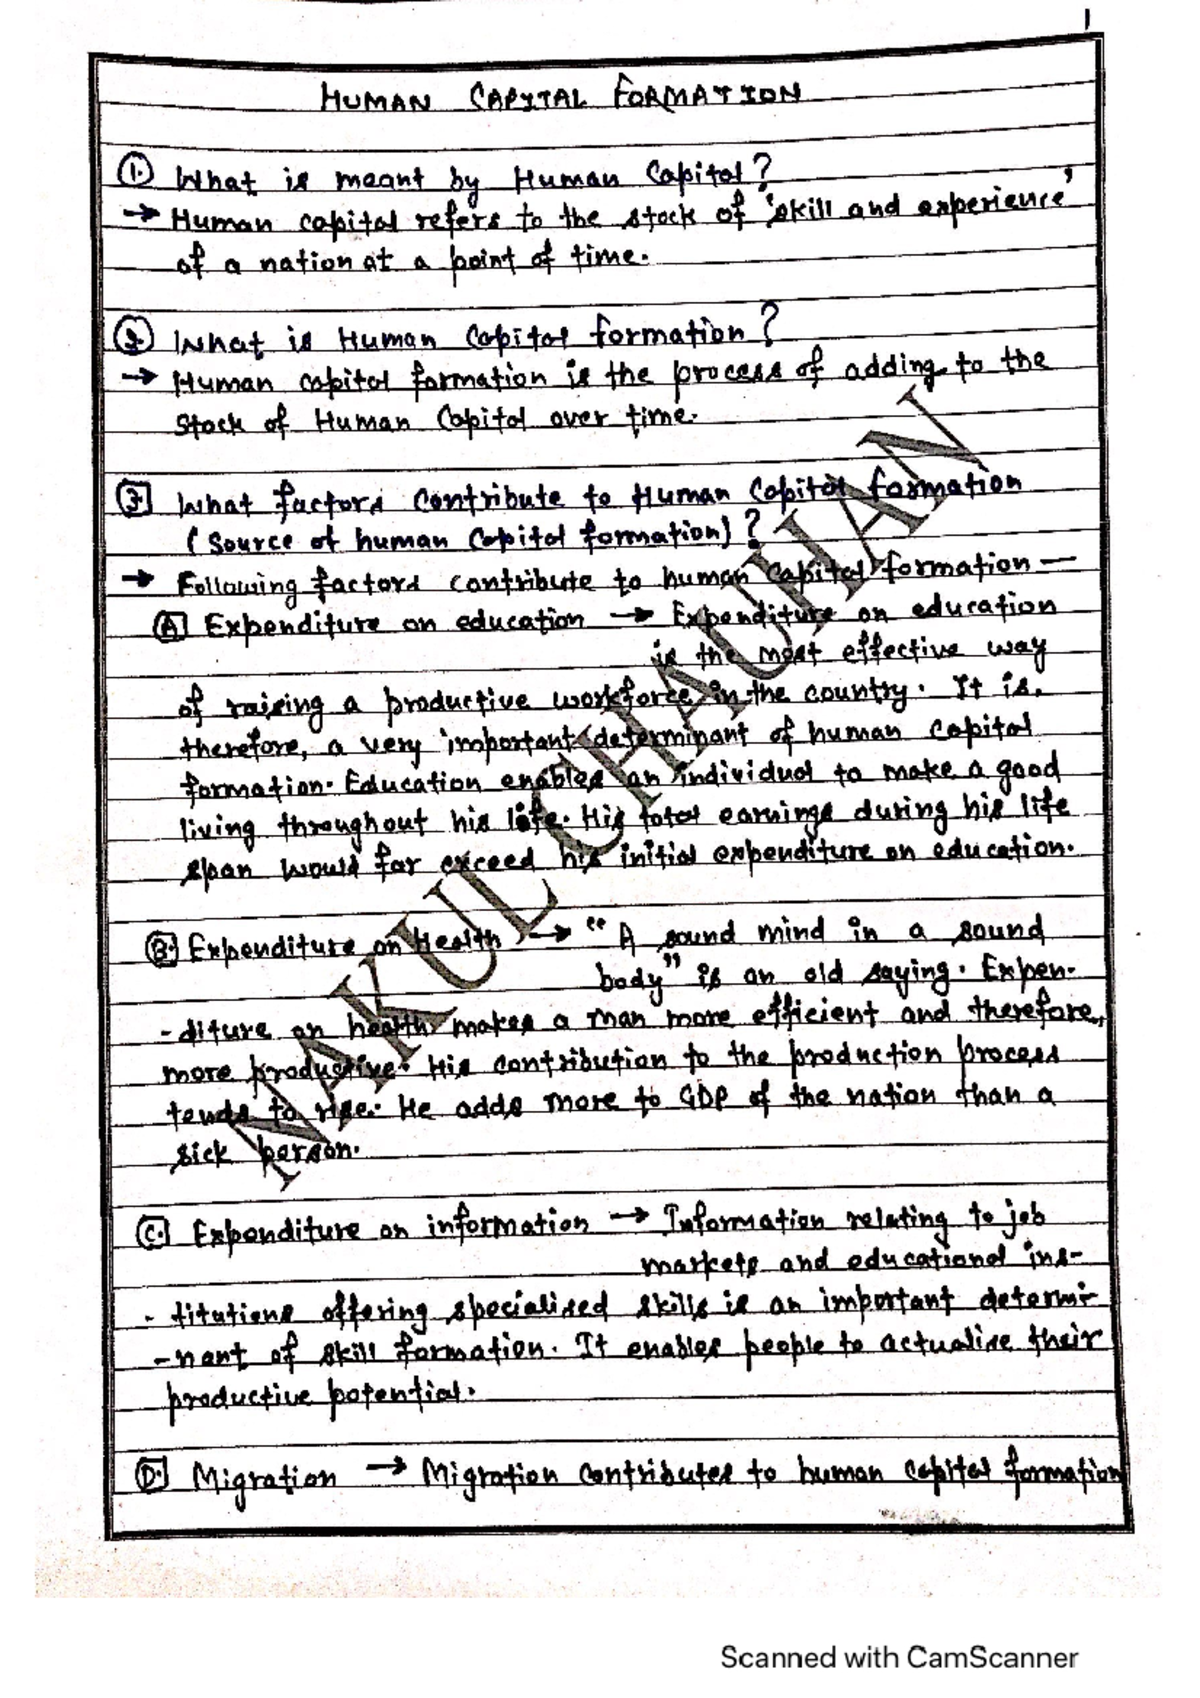 1
HUMAN CAPITAL FORMATION
1. What is meant by Human Capital?
→ Human capital refers to the stock of 'skill and experience'
of a nation at a point of time.
2. What is Human Capital formation?
→ Human capital formation is the process of adding to the
stock of Human Capital over time.
3. What factors contribute to Human Capital formation
(Source of human Capital formation)?
→ Following factors contribute to human capital formation —
A Expenditure on education → Expenditure on education
is the most effective way
of raising a productive workforce in the country. It is,
therefore, a very important determinant of human capital
formation. Education enables an individual to make a good
living throughout his life. His total earnings during his life
span would far exceed his initial expenditure on education.
B. Expenditure on Health → "A sound mind in a sound
body" is an old saying. Expen-
-diture on health makes a man more efficient and therefore,
more productive. His contribution to the production process
tends to rise. He adds more to GDP of the nation than a
sick person.
C. Expenditure on information → Information relating to job
markets and educational ins-
-titutions offering specialised skills is an important determi-
-nant of skill formation. It enables people to actualise their
productive potential.
D. Migration → Migration contributes to human capital formation
NAKUL CHAUHAN
Scanned with CamScanner